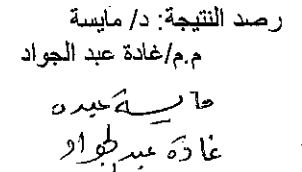 رصد النتيجة: د/ مايسة
م.م/غادة عبد الجواد
مايسة عبده
غادة عبد الجواد